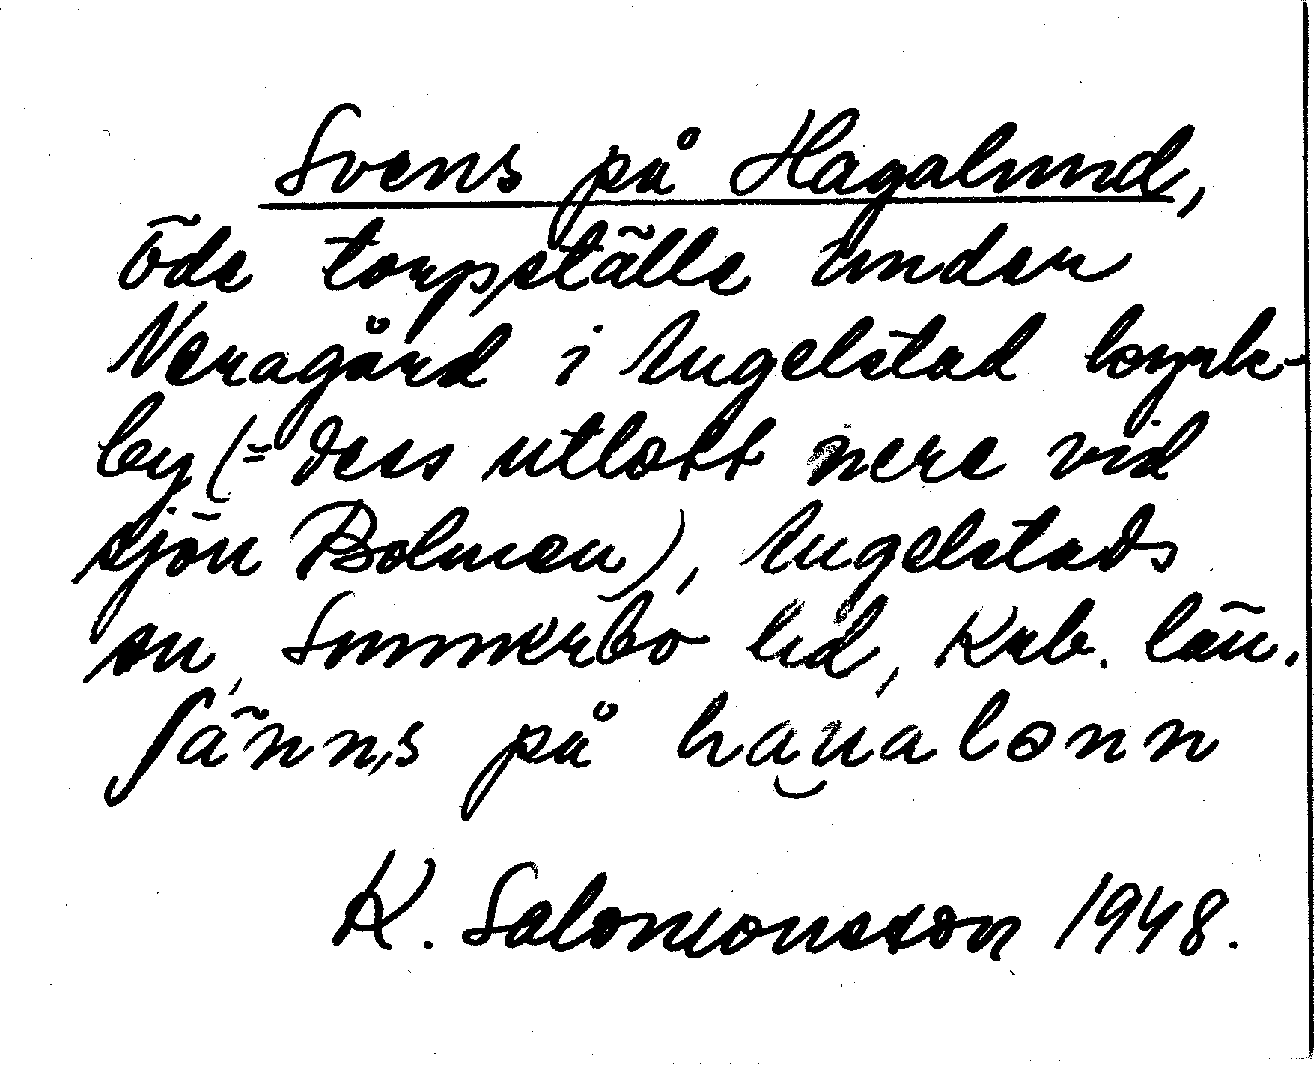 Svens på Hagalund,
Öde torpställe under
Neragård i Angelstad kyrk-
by (= dess utlott nere vid
sjön Bolmen), Angelstads
sn, Sunnerbo hd, Krb. län.
fänns på hau̯alonn
K. Salomonsson 1948.